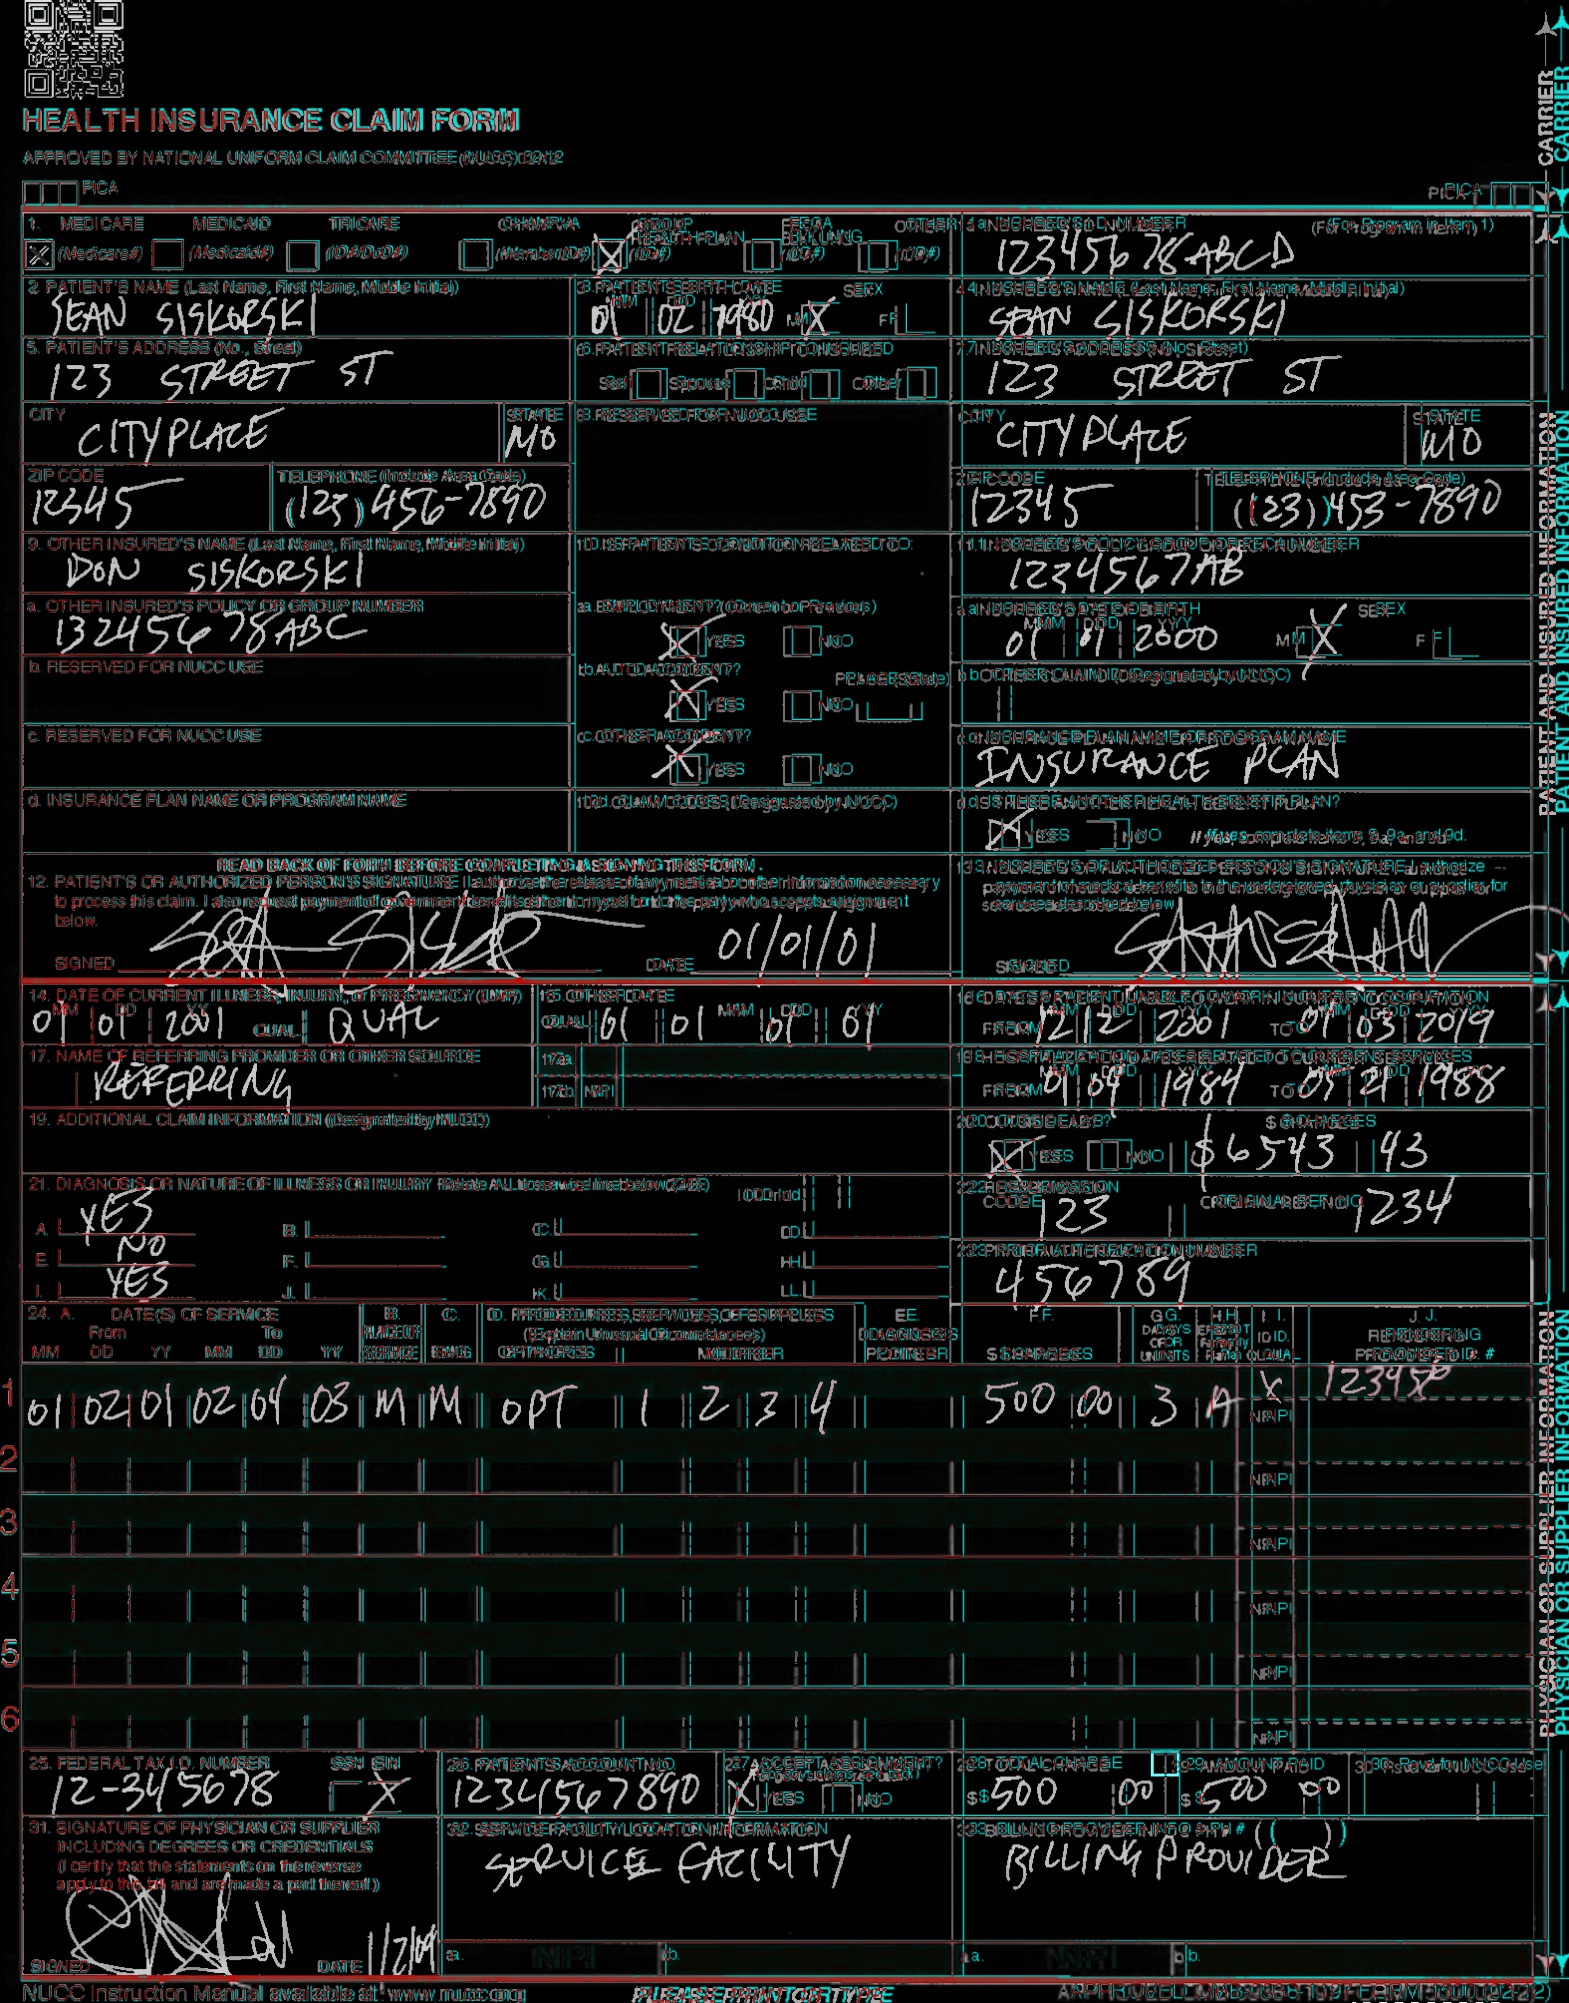 HEALTH INSURANCE CLAIM FORM
APPROVED BY NATIONAL UNIFORM CLAIM COMMITTEE (NUCC) 02/12
PICA
PICA
CARRIER
1. MEDICARE MEDICAID TRICARE CHAMPVA GROUP HEALTH PLAN FECA BLK LUNG OTHER
(Medicare#) (Medicaid#) (ID#/DoD#) (Member ID#) (ID#) (ID#) (ID#)
1a. INSURED'S I.D. NUMBER (For Program in Item 1)
12345678ABCD
2. PATIENT'S NAME (Last Name, First Name, Middle Initial)
SEAN SISKORSKI
3. PATIENT'S BIRTH DATE SEX
MM DD YY
01 02 1980 M X F
4. INSURED'S NAME (Last Name, First Name, Middle Initial)
SEAN SISKORSKI
5. PATIENT'S ADDRESS (No., Street)
123 STREET ST
6. PATIENT RELATIONSHIP TO INSURED
Self Spouse Child Other
7. INSURED'S ADDRESS (No., Street)
123 STREET ST
CITY STATE
CITYPLACE MO
8. RESERVED FOR NUCC USE
CITY STATE
CITYPLACE MO
ZIP CODE TELEPHONE (Include Area Code)
12345 (123) 456-7890
ZIP CODE TELEPHONE (Include Area Code)
12345 (123) 453-7890
9. OTHER INSURED'S NAME (Last Name, First Name, Middle Initial)
DON SISKORSKI
10. IS PATIENT'S CONDITION RELATED TO:
11. INSURED'S POLICY GROUP OR FECA NUMBER
1234567AB
a. OTHER INSURED'S POLICY OR GROUP NUMBER
13245678ABC
a. EMPLOYMENT? (Current or Previous)
YES NO
a. INSURED'S DATE OF BIRTH SEX
MM DD YY
01 01 2000 M X F
b. RESERVED FOR NUCC USE
b. AUTO ACCIDENT? PLACE (State)
YES NO
b. OTHER CLAIM ID (Designated by NUCC)
c. RESERVED FOR NUCC USE
c. OTHER ACCIDENT?
YES NO
c. INSURANCE PLAN NAME OR PROGRAM NAME
INSURANCE PLAN
d. INSURANCE PLAN NAME OR PROGRAM NAME
10d. CLAIM CODES (Designated by NUCC)
d. IS THERE ANOTHER HEALTH BENEFIT PLAN?
YES NO If yes, complete items 9, 9a, and 9d.
PATIENT AND INSURED INFORMATION
READ BACK OF FORM BEFORE COMPLETING & SIGNING THIS FORM.
12. PATIENT'S OR AUTHORIZED PERSON'S SIGNATURE I authorize the release of any medical or other information necessary
to process this claim. I also request payment of government benefits either to myself or to the party who accepts assignment
below.
SIGNED DATE 01/01/01
13. INSURED'S OR AUTHORIZED PERSON'S SIGNATURE I authorize
payment of medical benefits to the undersigned physician or supplier for
services described below.
SIGNED
14. DATE OF CURRENT ILLNESS, INJURY, or PREGNANCY (LMP)
MM DD YY
01 01 2001 QUAL. QUAL
15. OTHER DATE
MM DD YY
QUAL. 01 01 01 01
16. DATES PATIENT UNABLE TO WORK IN CURRENT OCCUPATION
MM DD YY MM DD YY
FROM 12 12 2001 TO 01 03 2019
17. NAME OF REFERRING PROVIDER OR OTHER SOURCE
REFERRING
17a.
17b. NPI
18. HOSPITALIZATION DATES RELATED TO CURRENT SERVICES
MM DD YY MM DD YY
FROM 01 04 1984 TO 05 21 1988
19. ADDITIONAL CLAIM INFORMATION (Designated by NUCC)
20. OUTSIDE LAB? $ CHARGES
YES NO $6543 43
21. DIAGNOSIS OR NATURE OF ILLNESS OR INJURY Relate A-L to service line below (24E) ICD Ind.
A. YES B. C. D.
E. NO F. G. H.
I. YES J. K. L.
22. RESUBMISSION CODE ORIGINAL REF. NO.
123 1234
23. PRIOR AUTHORIZATION NUMBER
456789
24. A. DATE(S) OF SERVICE B. C. D. PROCEDURES, SERVICES, OR SUPPLIES E. F. G. H. I. J.
From To PLACE OF SERVICE (Explain Unusual Circumstances) DIAGNOSIS POINTER DAYS OR UNITS EPSDT Family Plan ID. QUAL. RENDERING PROVIDER ID. #
MM DD YY MM DD YY EMG CPT/HCPCS MODIFIER $ CHARGES
1 01 02 01 02 04 03 M M OPT 1 2 3 4 500 00 3 A X
NPI
2 NPI
3 NPI
4 NPI
5 NPI
6 NPI
PHYSICIAN OR SUPPLIER INFORMATION
25. FEDERAL TAX I.D. NUMBER SSN EIN
12-345678 X
26. PATIENT'S ACCOUNT NO.
1234567890
27. ACCEPT ASSIGNMENT?
X YES NO
28. TOTAL CHARGE
$ 500 00
29. AMOUNT PAID
$ 500 00
30. Rsvd for NUCC Use
31. SIGNATURE OF PHYSICIAN OR SUPPLIER
INCLUDING DEGREES OR CREDENTIALS
(I certify that the statements on the reverse
apply to this bill and are made a part thereof.)
SIGNED DATE 1/2/09
32. SERVICE FACILITY LOCATION INFORMATION
SERVICE FACILITY
a. NPI b.
33. BILLING PROVIDER INFO & PH # ( )
BILLING PROVIDER
a. NPI b.
NUCC Instruction Manual available at: www.nucc.org
PLEASE PRINT OR TYPE